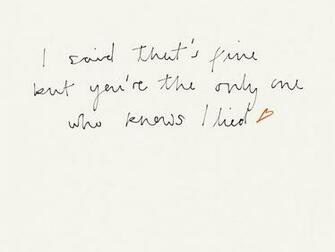 I said that's fine
but you're the only one
who knows I lied